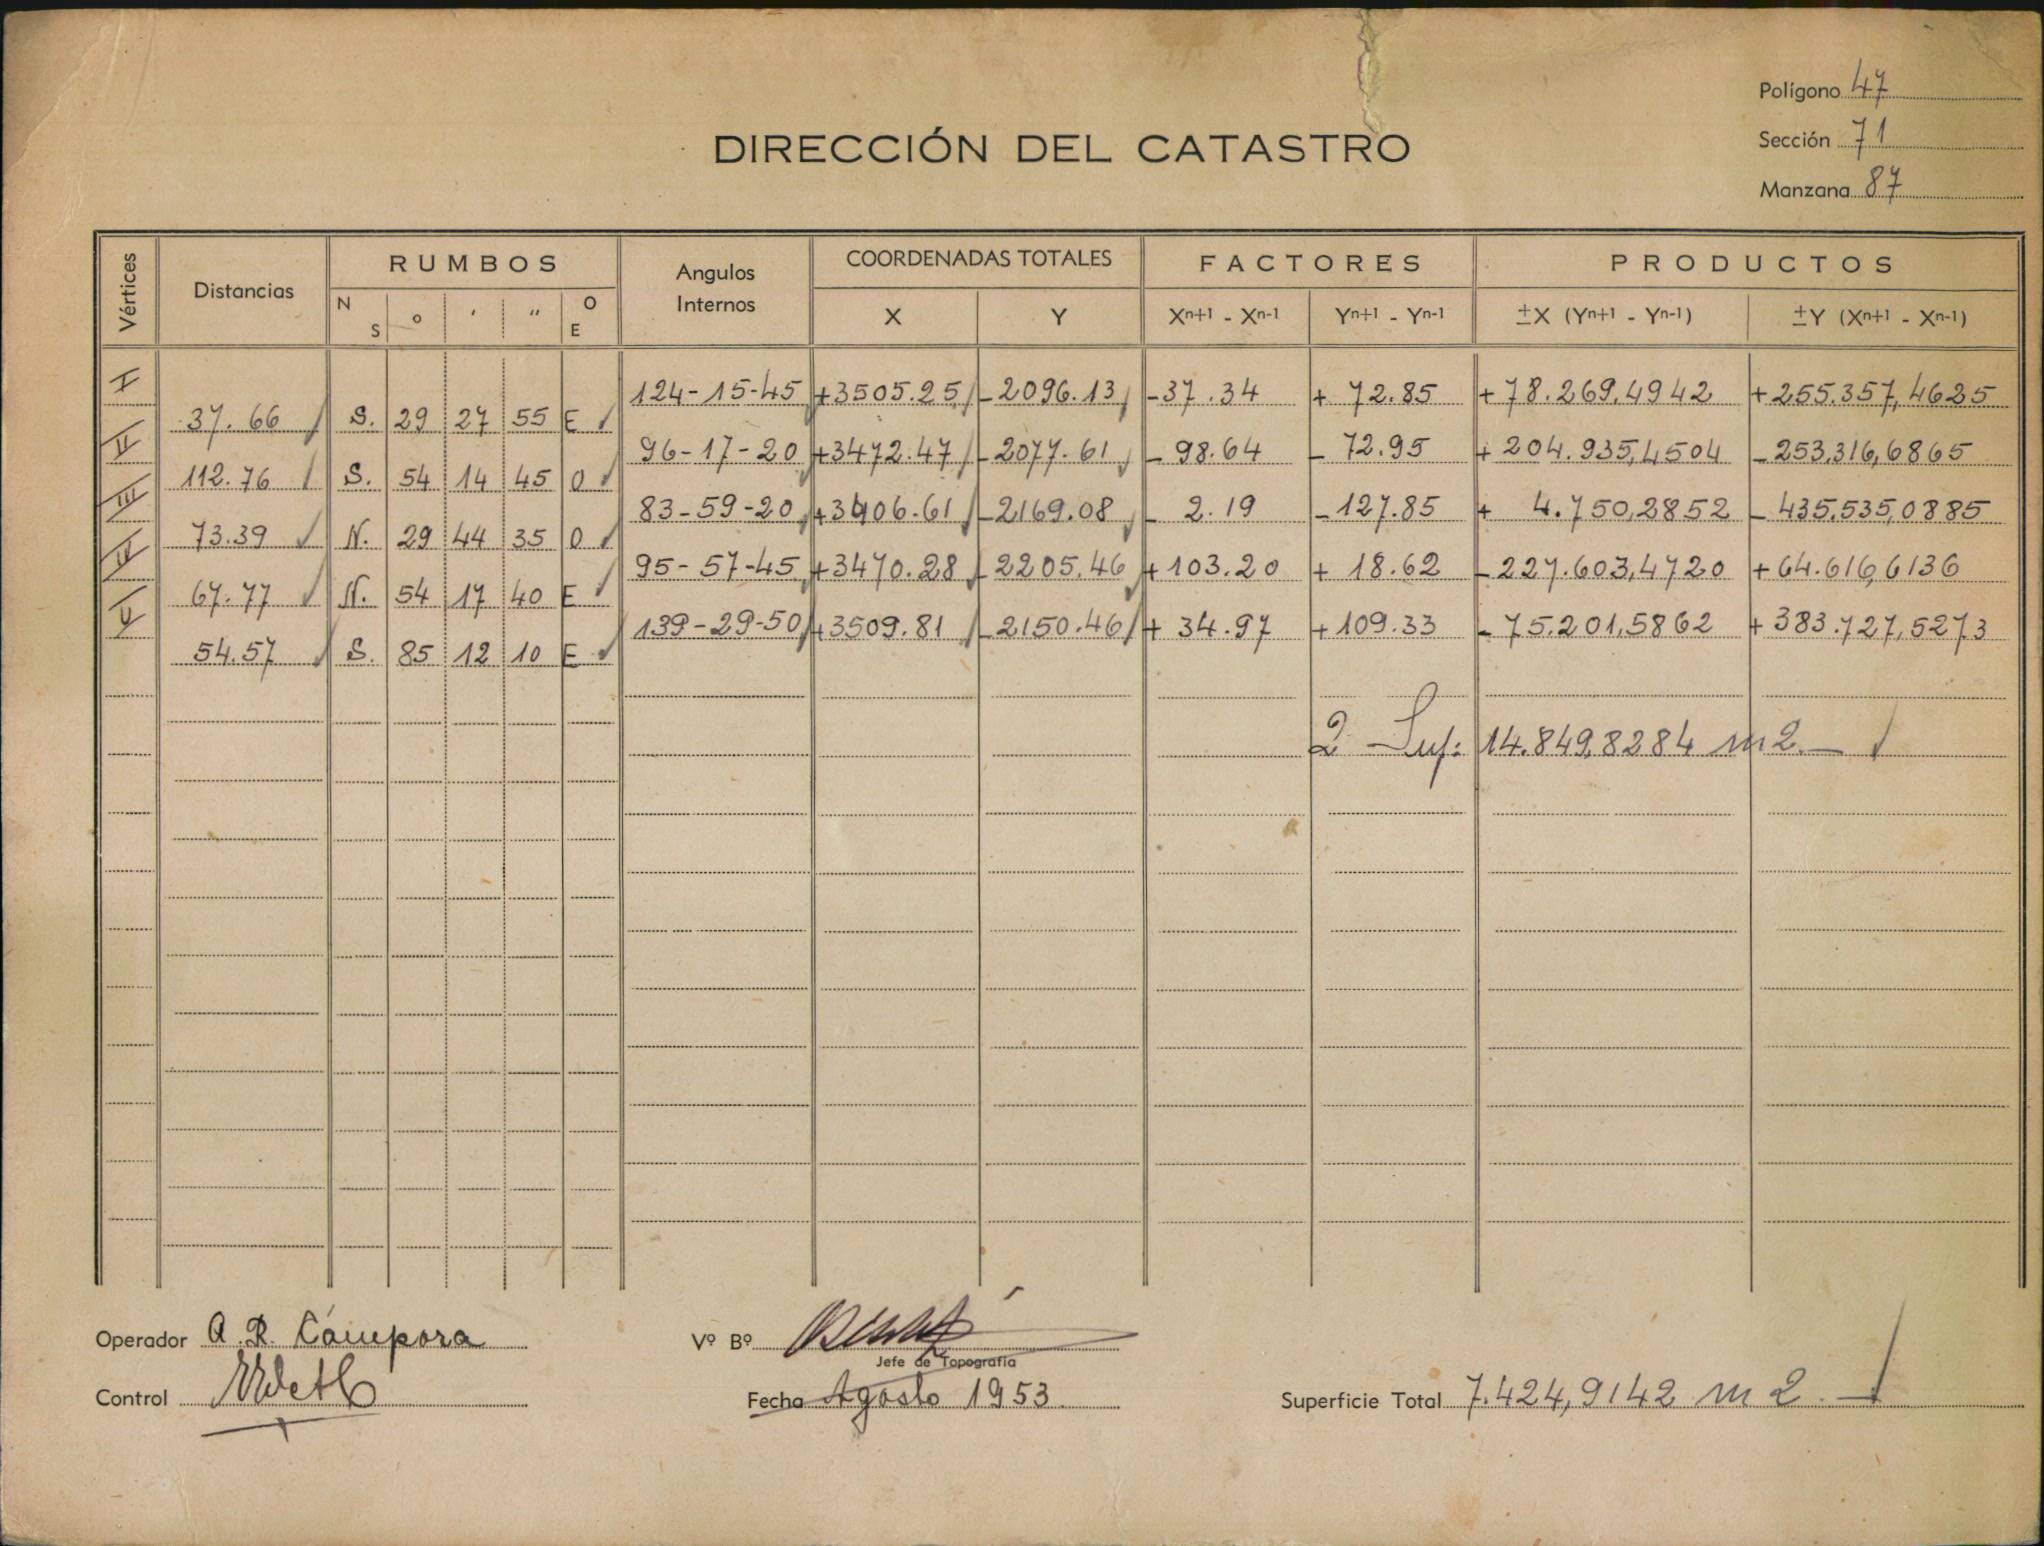 Polígono 47
DIRECCIÓN DEL CATASTRO
Sección 71
Manzana 87
Vértices Distancias RUMBOS Angulos Internos COORDENADAS TOTALES FACTORES PRODUCTOS
N S ° ' " O E X Y Xn+1 - Xn-1 Yn+1 - Yn-1 ±X (Yn+1 - Yn-1) ±Y (Xn+1 - Xn-1)
I 124-15-45 +3505.25 -2096.13 -37.34 + 72.85 +78.269,4942 +255.357,4625
37.66 S. 29 27 55 E
II 96-17-20 +3472.47 -2077.61 - 98.64 - 72.95 +204.935,4504 -253.316,6865
112.76 S. 54 14 45 O
III 83-59-20 +3406.61 -2169.08 - 2.19 -127.85 + 4.750,2852 -435.535,0885
73.39 N. 29 44 35 O
IV 95-57-45 +3470.28 -2205.46 +103.20 + 18.62 -227.603,4720 +64.616,6136
67.77 N. 54 17 40 E
V 139-29-50 +3509.81 -2150.46 + 34.97 +109.33 -75.201,5862 +383.727,5273
54.57 S. 85 12 10 E
2 Sup: 14.849,8284 m2.
Operador A. R. Cámpora
Vº Bº
Jefe de Topografía
Control
Fecha Agosto 1953.
Superficie Total 7.424,9142 m2.